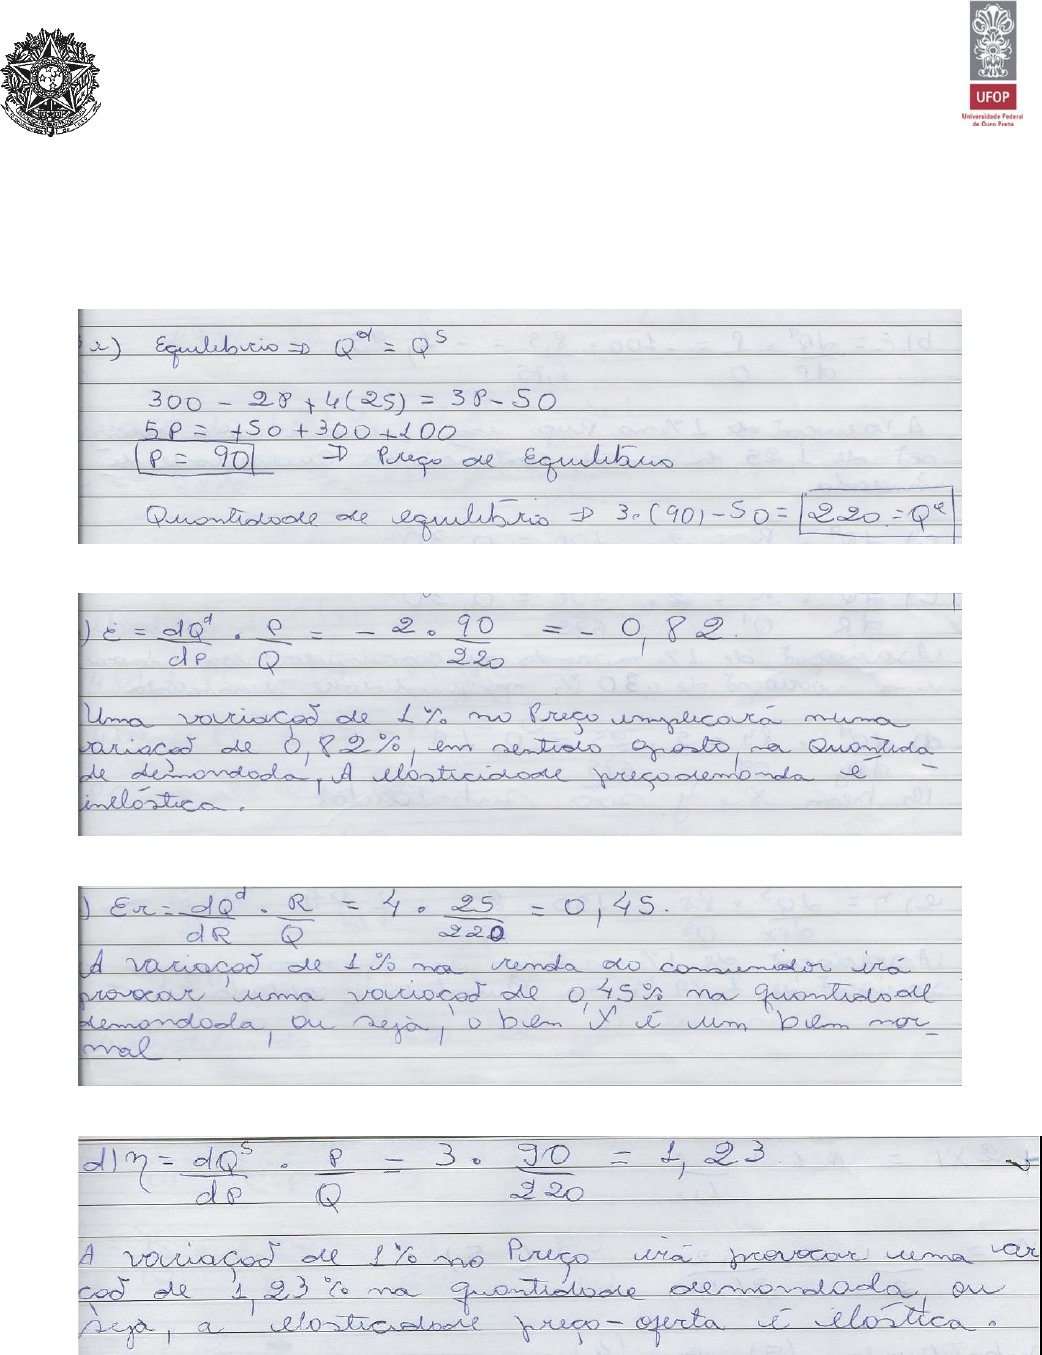 UFOP
Universidade Federal
de Ouro Preto
a) Equilibrio ⇒ Q^d = Q^S
300 - 2P + 4(25) = 3P - 50
5P = +50 + 300 + 100
P = 90 ⇒ Preço de Equilibrio
Quantidade de equilíbrio ⇒ 3.(90) - 50 = 220 = Q^e
) E = dQ^d/dP . P/Q = - 2 . 90/220 = - 0,82.
Uma variação de 1% no Preço implicará numa
variação de 0,82%, em sentido oposto, na Quantida
de demandada, A elasticidade preço demanda é
inelástica.
) Er = dQ^d/dR . R/Q = 4 . 25/220 = 0,45.
A variação de 1% na renda do consumidor irá
provocar uma variação de 0,45% na quantidade
demandada, ou seja, o bem X é um bem nor_
mal.
d) η = dQ^S/dP . P/Q = 3 . 90/220 = 1,23.
A variação de 1% no Preço irá provocar uma var
ção de 1,23% na quantidade demandada, ou
seja, a elasticidade preço-oferta é elástica.